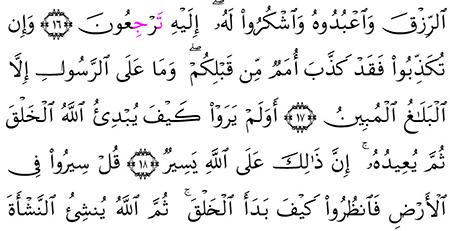 ٱلرِّزْقَ وَٱعْبُدُوهُ وَٱشْكُرُوا۟ لَهُۥۖ إِلَيْهِ تَرْجِعُونَ ١٦ وَإِن
تُكَذِّبُوا۟ فَقَدْ كَذَّبَ أُمَمٌ مِّن قَبْلِكُمْۖ وَمَا عَلَى ٱلرَّسُولِ إِلَّا
ٱلْبَلَٰغُ ٱلْمُبِينُ ١٧ أَوَلَمْ يَرَوْا۟ كَيْفَ يُبْدِئُ ٱللَّهُ ٱلْخَلْقَ
ثُمَّ يُعِيدُهُۥۚ إِنَّ ذَٰلِكَ عَلَى ٱللَّهِ يَسِيرٌ ١٨ قُلْ سِيرُوا۟ فِى
ٱلْأَرْضِ فَٱنظُرُوا۟ كَيْفَ بَدَأَ ٱلْخَلْقَۚ ثُمَّ ٱللَّهُ يُنشِئُ ٱلنَّشْأَةَ